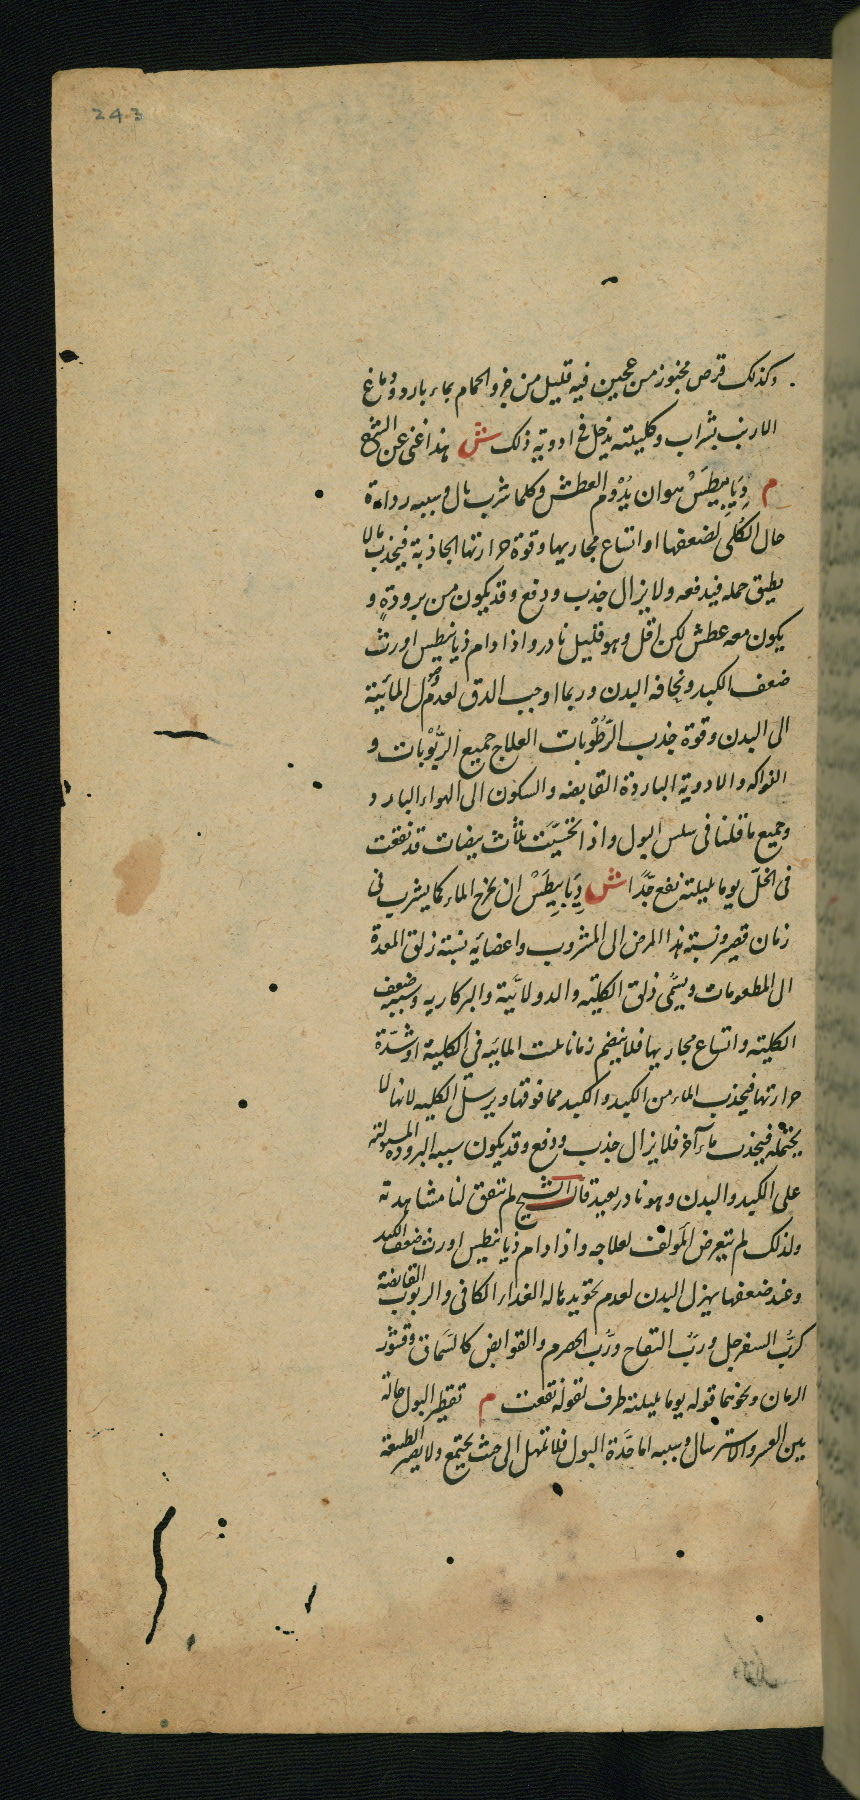 243
وكذلك قرص مخبوز من عجين فيه قليل من خرو الحمام بماء بارد ودماغ
الارنب بشراب وكليته يدخل فى ادوية ذلك ش هذا غنى عن الشرح
م دِيَابِيطَسْ هو ان يَدُوْم العطش وكلما شرب بال وسببه رداءة
حال الكُلى لضعفها او اتساع مجاريها وقوة حرارتها الجاذبة فيجذب مالا
يطيق حمله فيدفعه ولا يزال جذب ودفع وقد يكون من برودةٍ و
يكون معه عطش لكن اقل وهو قليل نادر واذا دام ذيانيطس اورث
ضعف الكبد ونحافة البدن وربما اوجب الدق لعدم وصول المائية
الى البدن وقوة جذب الرّطُوْبات العلاج جميع الرُّبُوْبات و
الفواكه والادوية الباردة القابضه والسكون الى الهواء البارد و
وجميع ما قلنا فى سلس البول واذا تحسّيَت ثلث بيضات قد نقعت
فى الخلّ يوما بليلته نفع جدًّا ش دِيَابِيطَسْ ان يخرج الماء كما يشرب فى
زمان قصير ونسبة هذا المرض الى المشروب واعضائه نسبة زلق المعدة
الى المطعومات ويسمَّى زلق الكليته والدولابيَّة والبركاريه وسببه ضعف
الكليته واتساع مجاريها فلا ينضم زمانا تلبث المائيه فى الكلية او شدّة
حرارتها فيجذب الماء من الكبد والكبد مما فوقها ويرسل الكليه لانها لا
يحتمله فيجذب ماءً آخر فلا يزال جذب ودفع وقد يكون سببه البرودة المستولية
على الكبد والبدن وهو نادر بعيد قال الشيخ لم تتفق لنا مشاهدته
ولذلك لم يتعرض المَولف لعلاجه واذا دام ذيانيطس اورث ضعف الكبد
وعند ضعفها يهزل البدن لعدم توريدها له الغداء الكافى والربوب القابضة
كرُبّ السفرجل وربّ التفاح ورُبّ الحصرم والقوابض كالسّماق وقشور
الرمان ونحوهما قوله يوما بليلته ظرف لقوله نقعت م تقطير البول حالة
بين العسر والاسترسال وسببه اما حَدّة البول فلا تمهل الى حيث يجتمع ولا يصبر الطبيعة